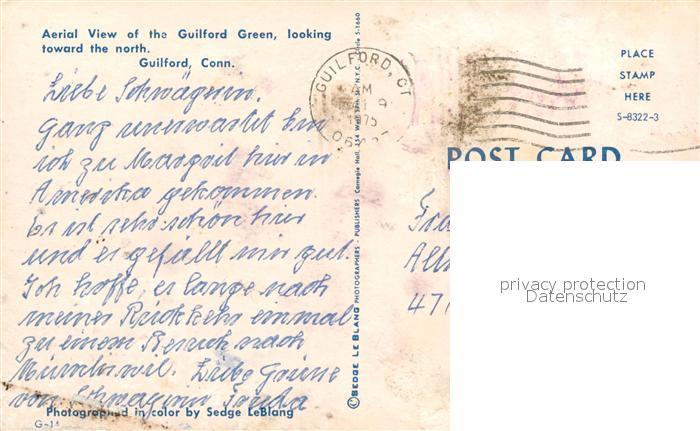 Aerial View of the Guilford Green, looking
toward the north.
Guilford, Conn.
Liebe Schwägerin.
Ganz unerwartet bin
ich zu Margrit hier in
Amerika gekommen.
Es ist sehr schön hier
und es gefällt mir gut.
Ich hoffe, es lange nach
meiner Rückkehr einmal
zu einem Besuch nach
Liebe Grüsse
von Schwägerin Frieda.
Photographed in color by Sedge LeBlang
G-14
© SEDGE LE BLANG PHOTOGRAPHERS - PUBLISHERS Carnegie Hall, 154 West 57th St. N.Y.C. Circle 5-1660
GUILFORD, CT
AM
9
1975
PLACE
STAMP
HERE
S-8322-3
POST CARD
47
privacy protection
Datenschutz